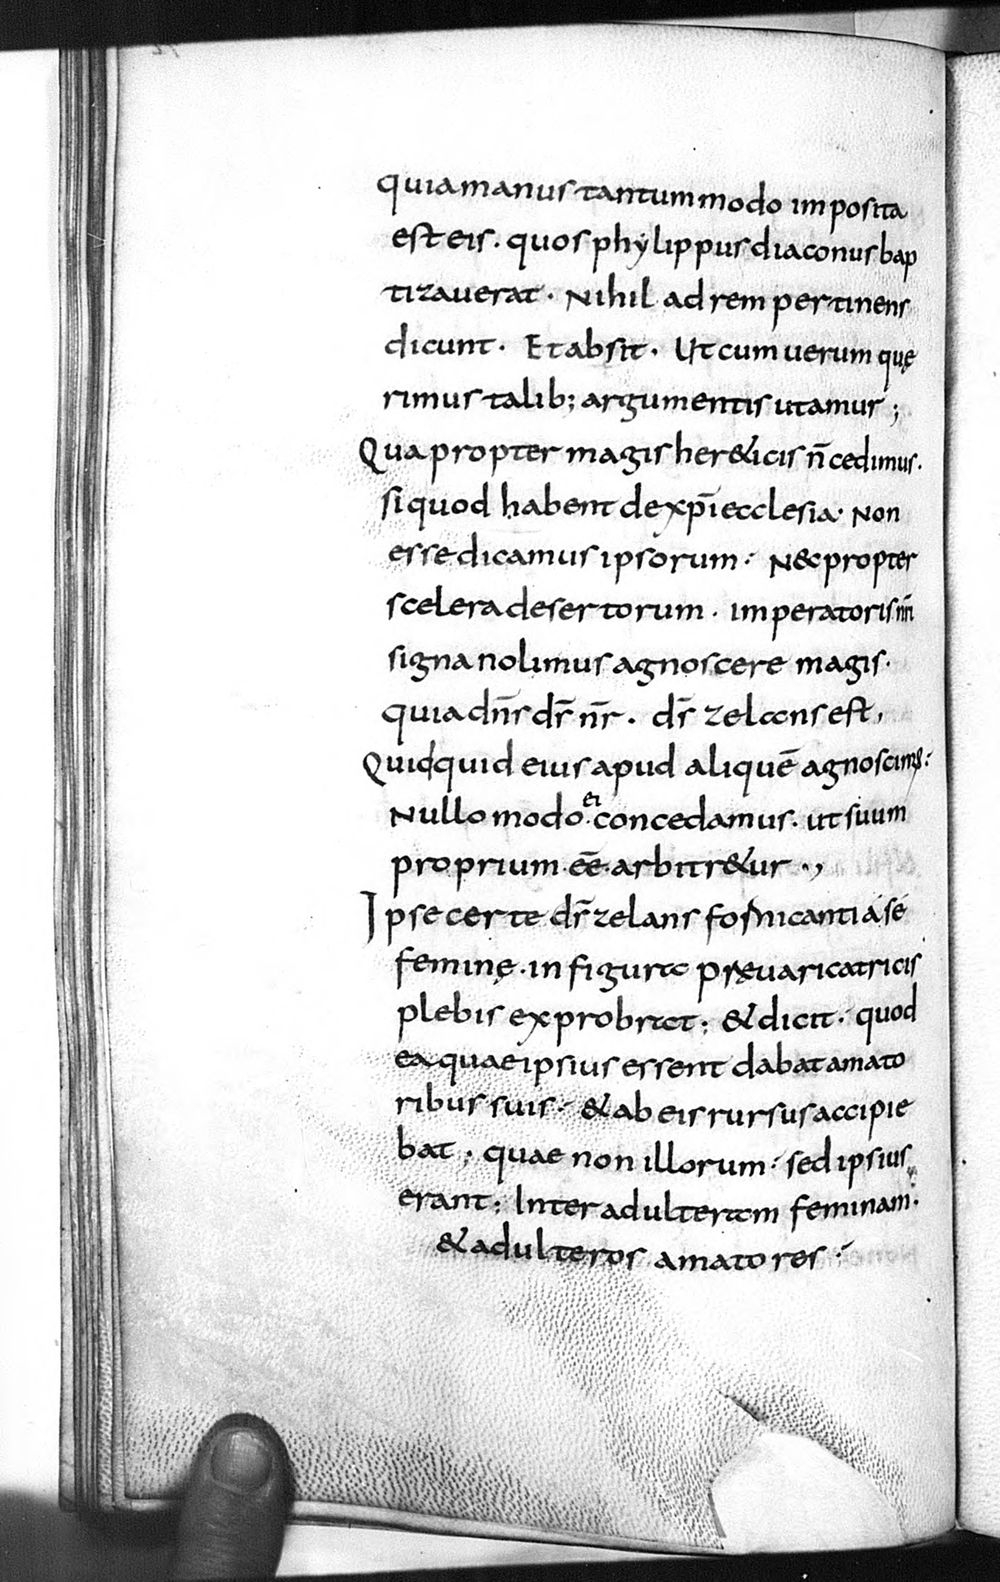 quia manus tantummodo imposita
est eis. quos phylippus diaconus bap
tizauerat. Nihil ad rem pertinens
dicunt. Et absit. Ut cum uerum quę
rimus talib; argumentis utamur;
Qua propter magis her&icis n̄ cedimus.
si quod habent de xp̄i ecclesia. Non
esse dicamus ipsorum. N&c propter
scelera desertorum. imperatoris nr̄i
signa nolimus agnoscere magis.
quia dn̄s ds̄ nr̄. ds̄ zelans est,
Quidquid eius apud aliquē agnoscim;:
Nullo modo ei concedamus. ut suum
proprium eē arbitr&ur.,
Ipse certe ds̄ zelans fornicantia se
feminę. in figura pręuaricatricis
plebis exprobrat; & dicit. quod
ea quae ipsius essent dabat amato
ribus suis. & ab eis rursus accipie
bat; quae non illorum. sed ipsius
erant; Inter adulteram feminam.
& adulteros amatores.